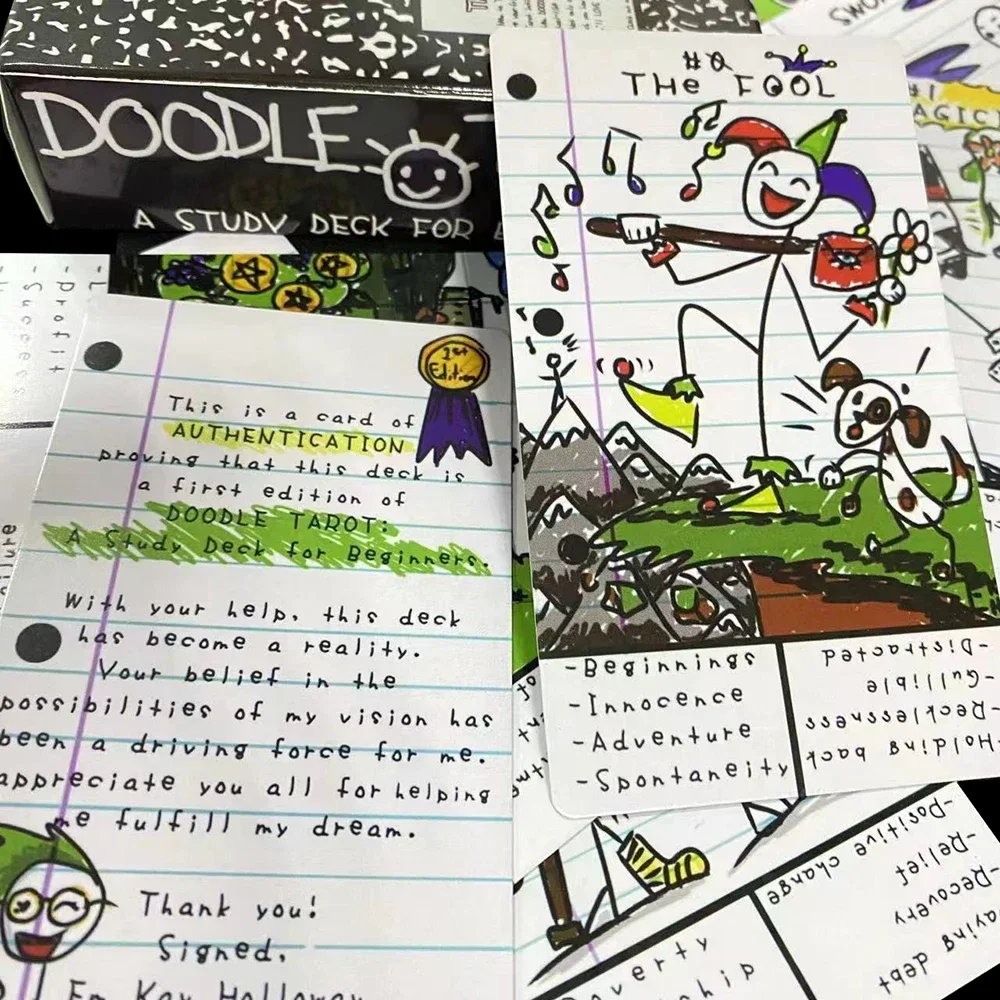 DOODLE
A STUDY DECK FOR
#0
THE FOOL
- Beginnings
- Innocence
- Adventure
- Spontaneity
- Distracted
- Gullible
- Recklessness
- Holding back
1st
Edition
This is a card of
AUTHENTICATION
proving that this deck is
a first edition of
DOODLE TAROT:
A Study Deck for Beginners.
With your help, this deck
has become a reality.
Your belief in the
possibilities of my vision has
been a driving force for me.
appreciate you all for helping
me fulfill my dream.
Thank you!
Signed,
Em Kay Holloway
#1
- Positive change
- Relief
- Recovery
debt